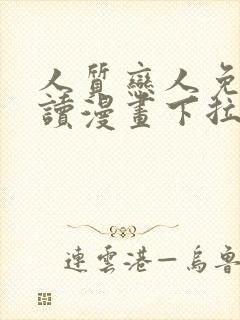 人質戀人免
讀漫畫下拉
連雲港—烏魯